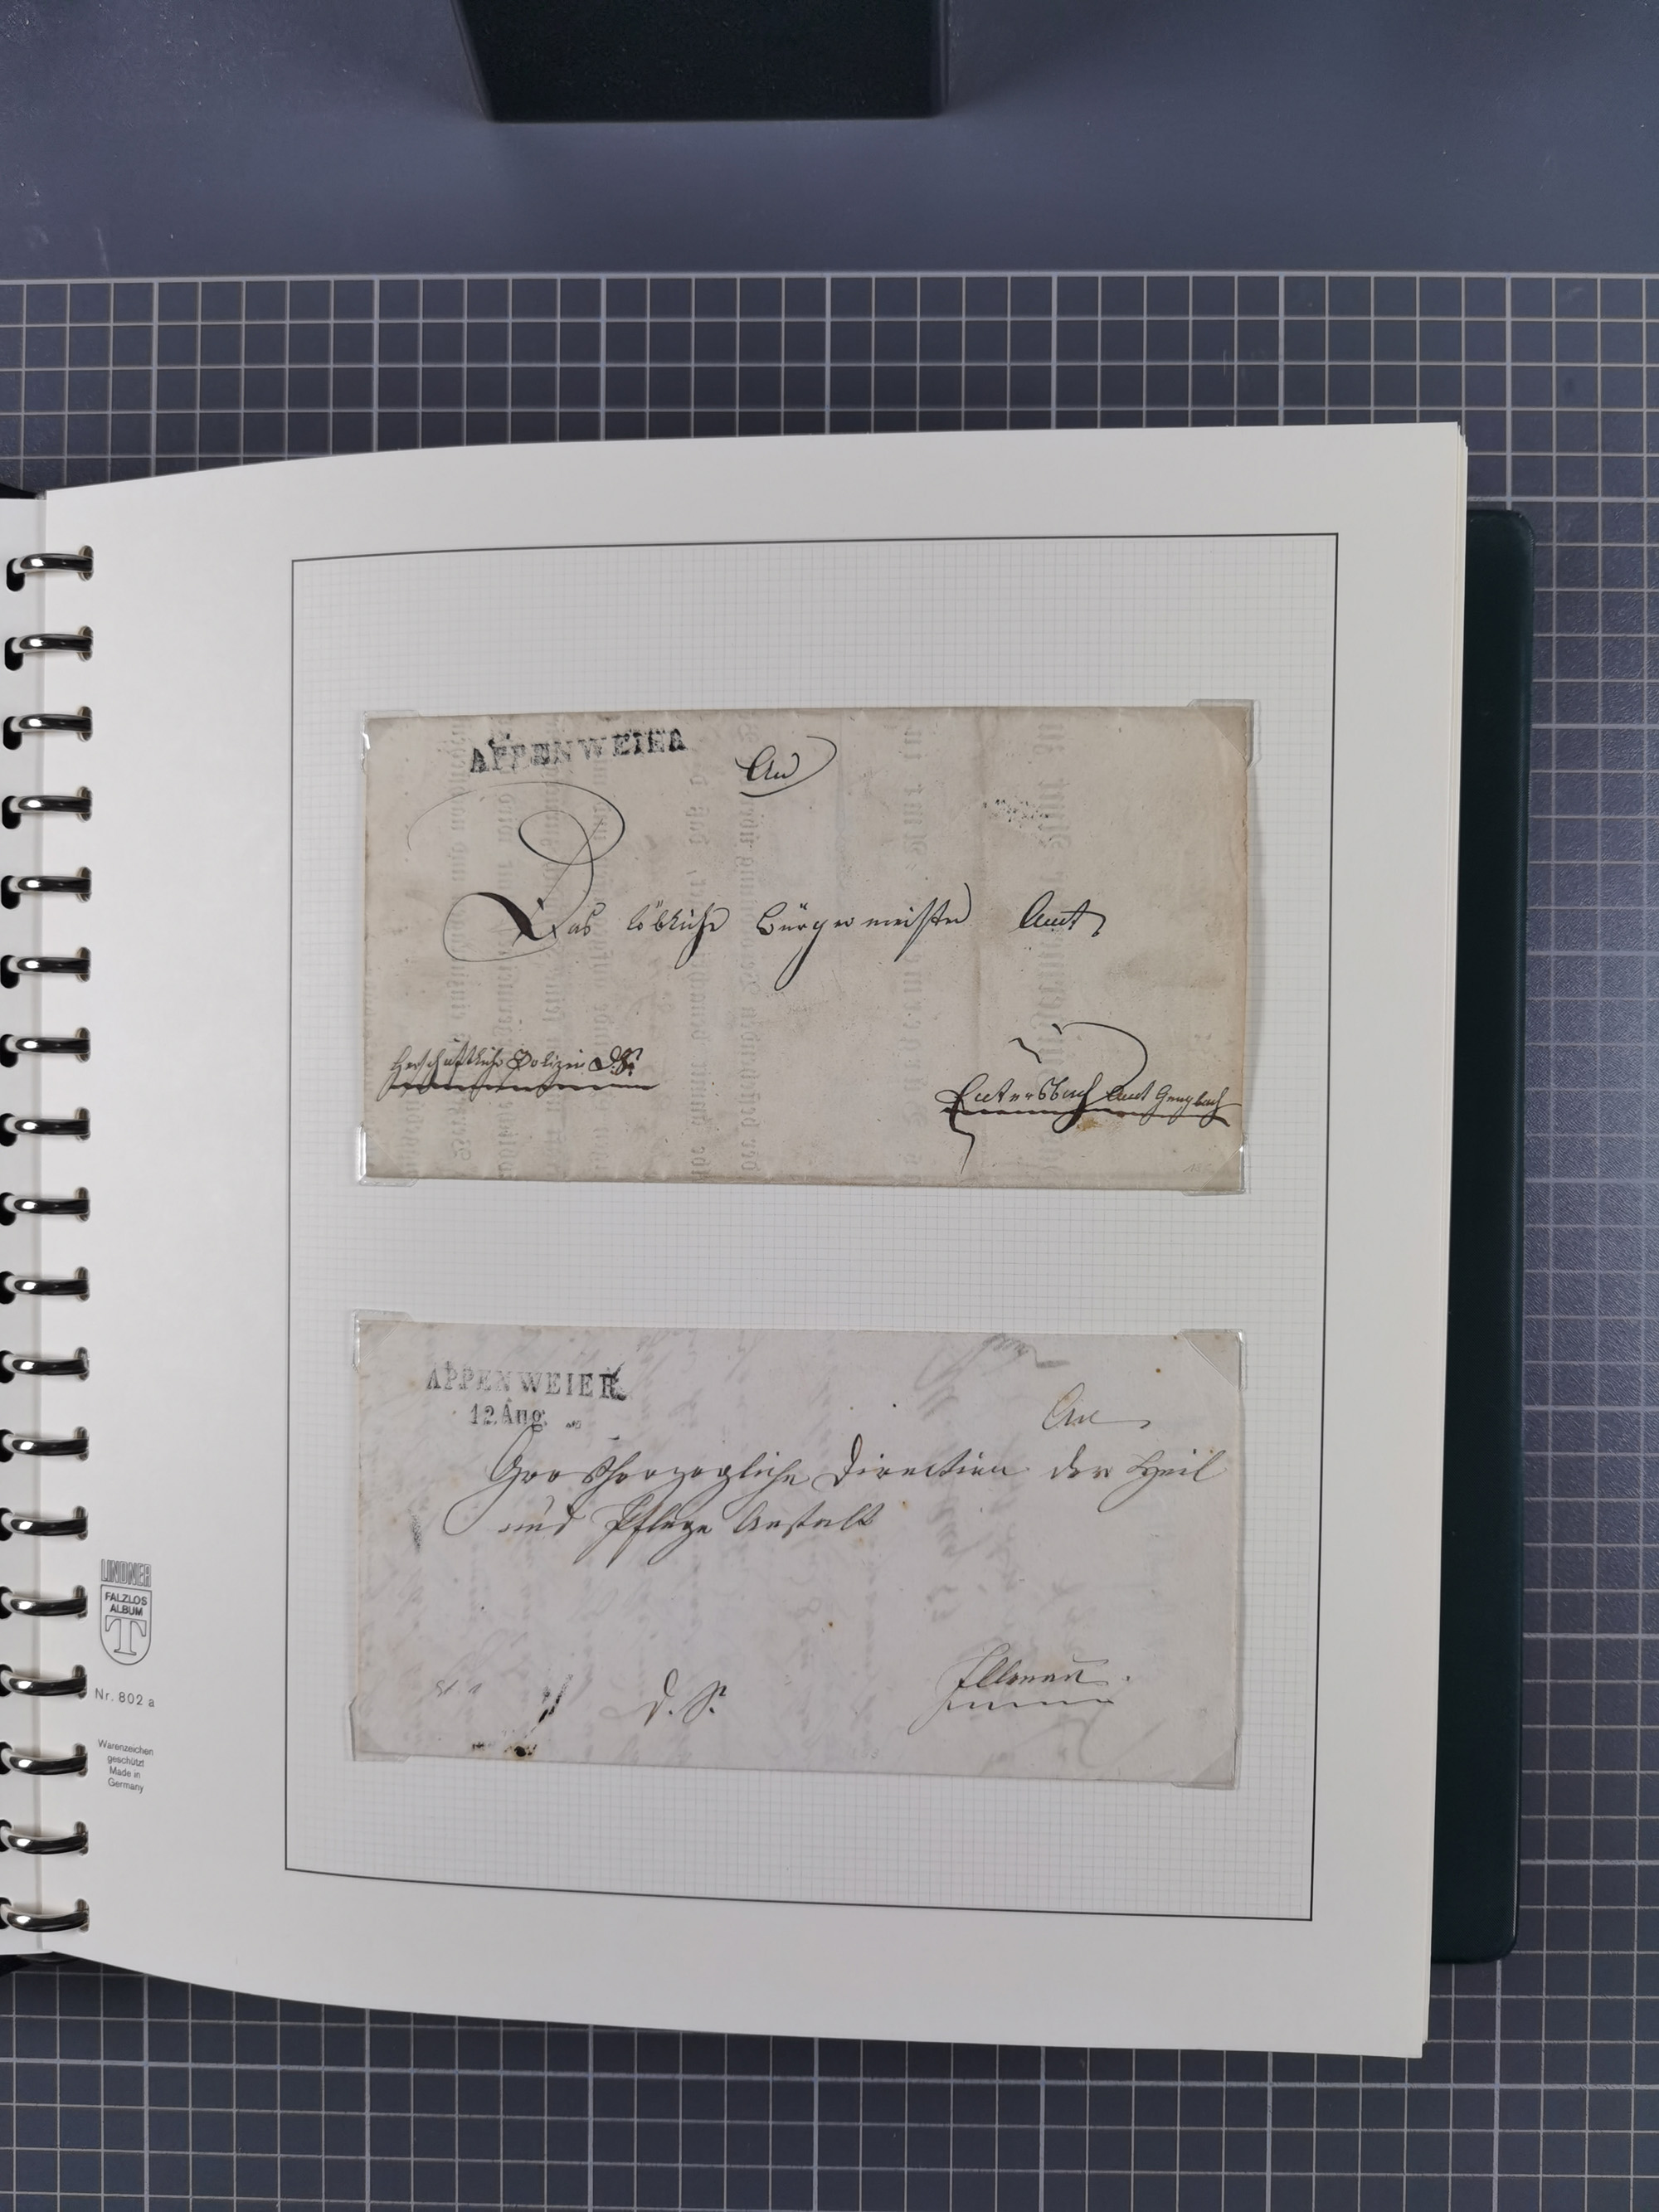 APPENWEIER
An
Das löbliche Bürgermeister Amt
Herschaftliche Polizei D.S.
Amt Gengbach
APPENWEIER
12. Aug.
An
Grosherzogliche Direction der Heil
und Pflege Anstalt
D. S.
Illenau.
LINDNER
FALZLOS
ALBUM
T
Nr. 802 a
Warenzeichen
geschützt
Made in
Germany